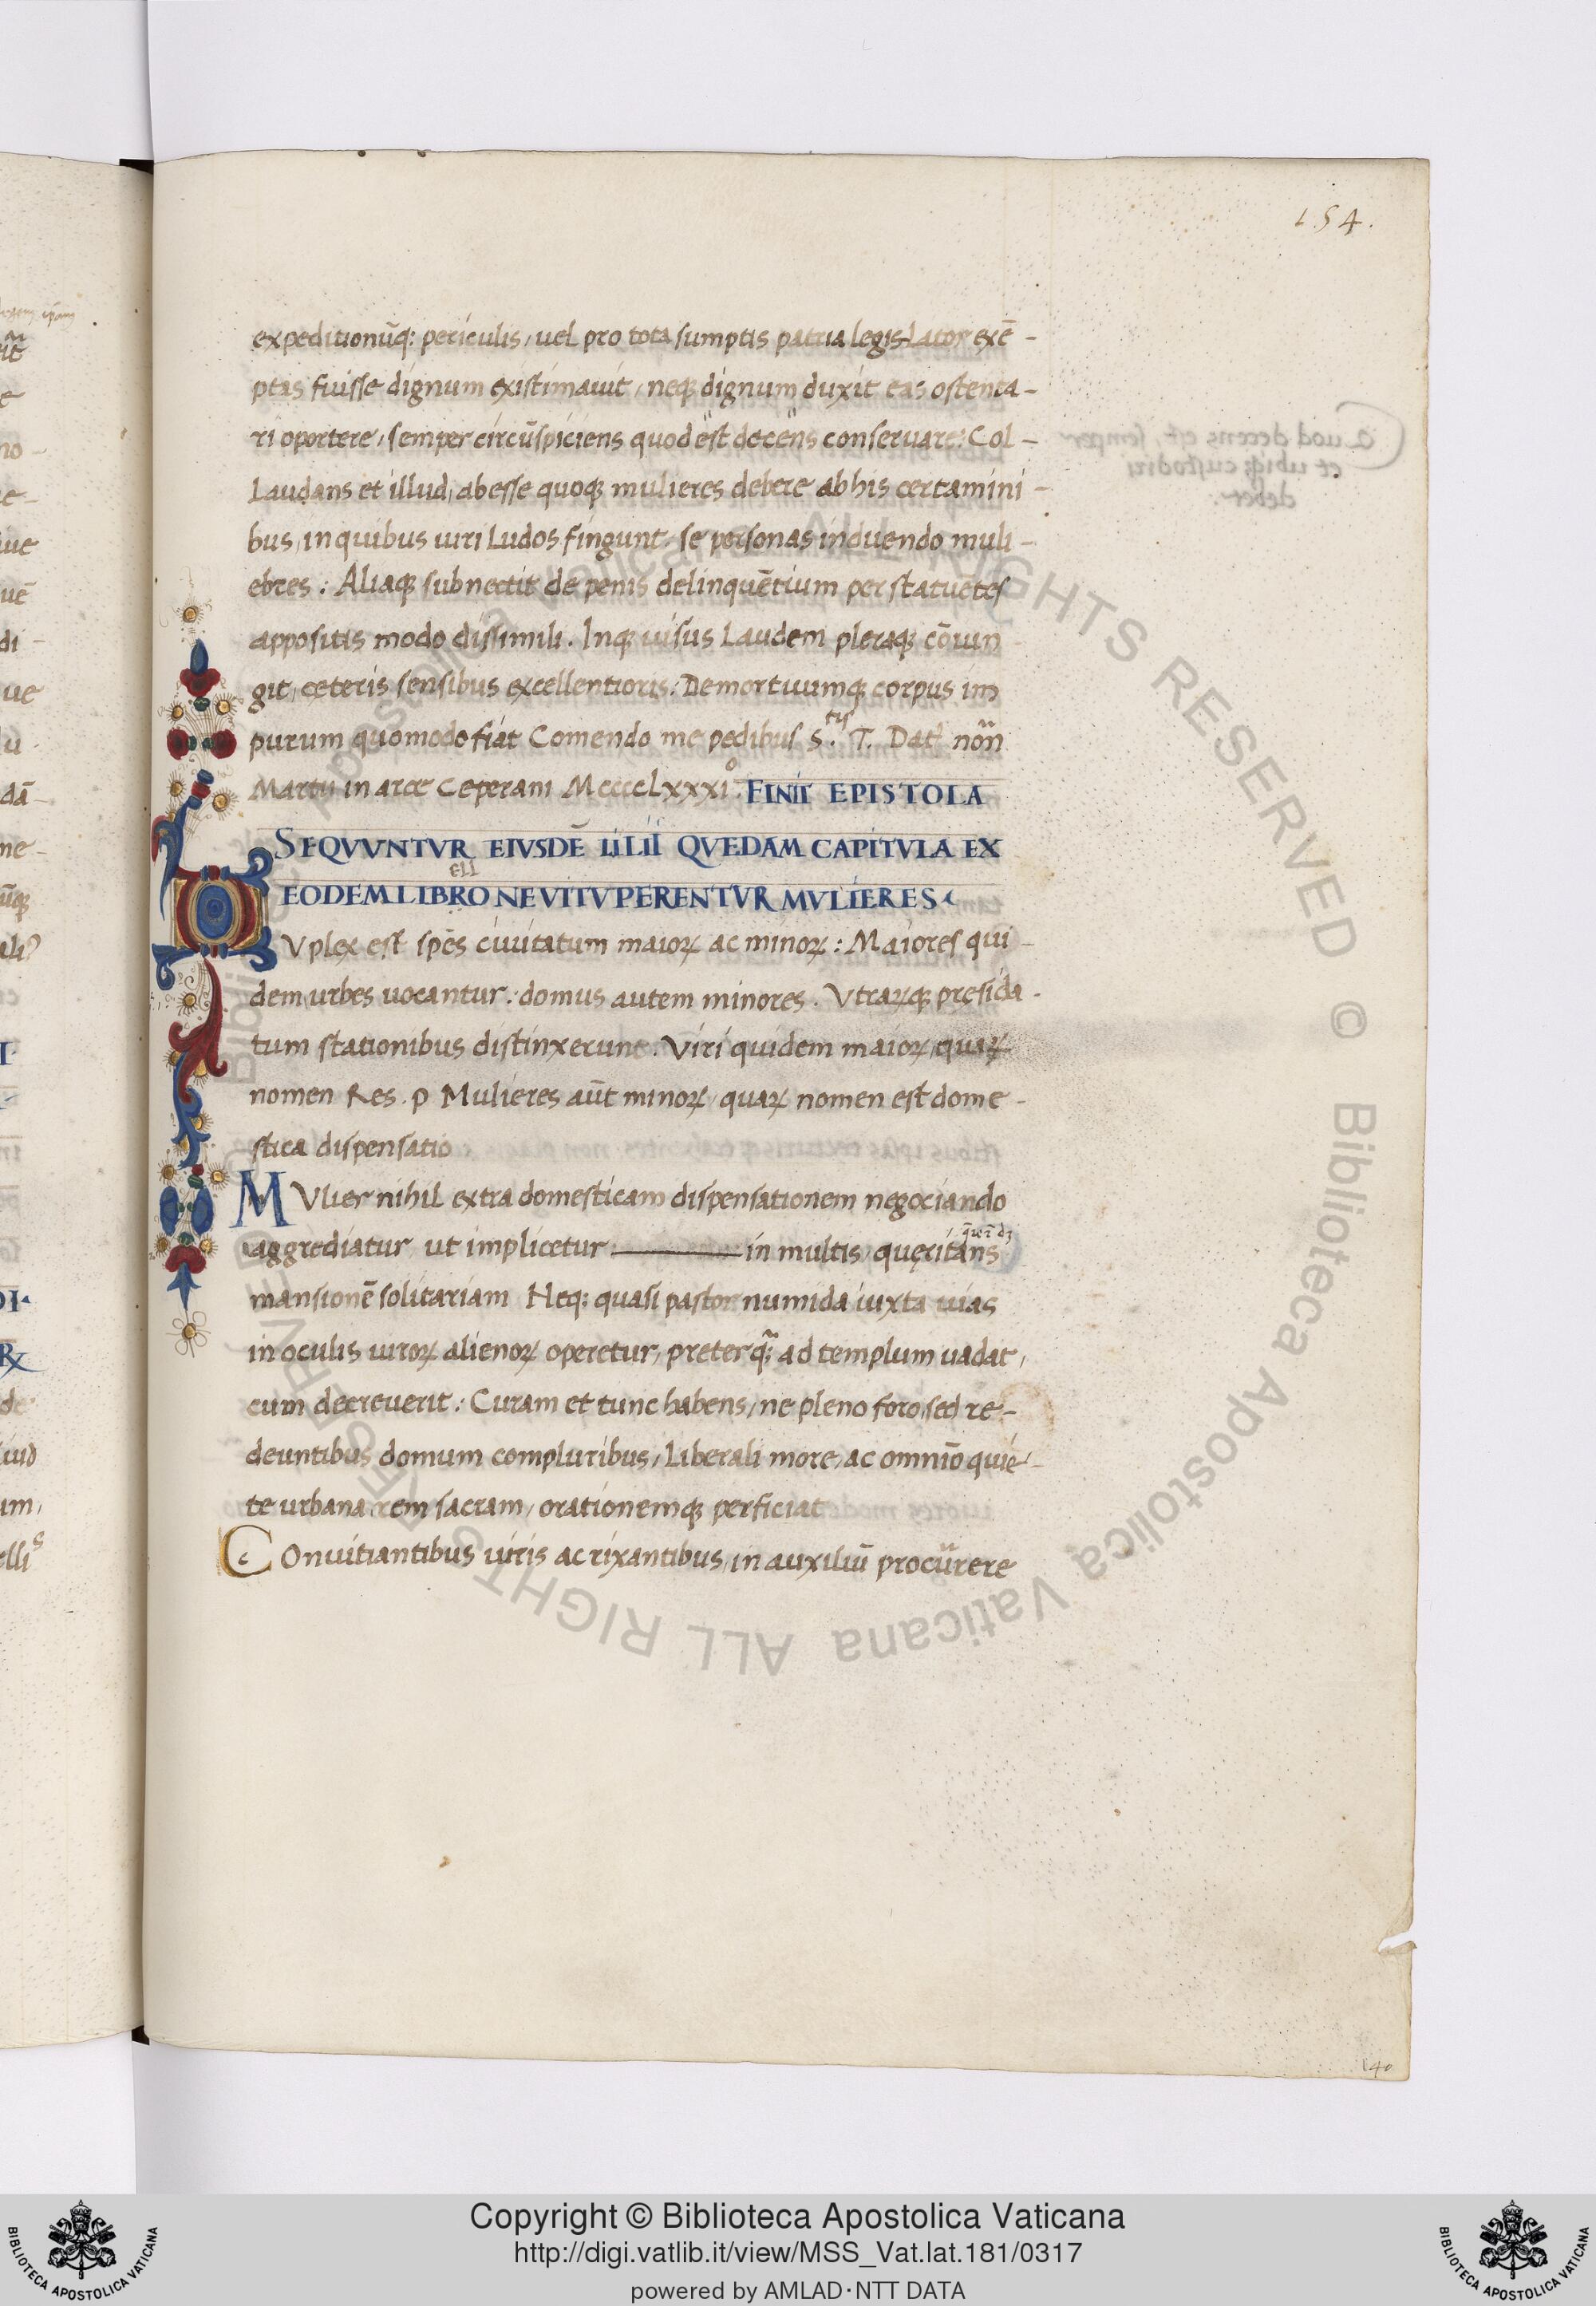 1.54.
expeditionūq: periculis, uel pro tota sumptis patria legis Lator exē-
ptas fuisse dignum existimauit, neq dignum duxit eas ostenta-
ri oportere, semper circūspiciens quod est decens conseruare: Col-
Laudans et illud, abesse quoq mulieres debere ab his certamini-
bus, in quibus uiri Ludos fingunt, se personas induendo muli-
ebres: Aliaq subnectit de penis delinquētium per statuētes
appositis modo dissimili. Inq uisus Laudem pleraq cōiun
git, ceteris sensibus excellentioris: Demortuumq corpus im
purum quomodo fiat Comendo me pedibus S.tis T. Dat nōn
Martii in arce Ceperani MccccLxxxi.o FINIT EPISTOLA
SEQVVNTVR EIVSDĒ LILII QVEDAM CAPITVLA EX
EODEM LIBRO NE VITVPERENTVR MVLIERES
DVplex est spēs ciuitatum maioꝝ ac minoꝝ: Maiores qui-
dem urbes uocantur: domus autem minores. Vtraꝝq presida-
tum stationibus distinxerunt. Viri quidem maioꝝ, quaꝝ
nomen Res. p Mulieres aūt minoꝝ, quaꝝ nomen est dome-
stica dispensatio
MVlier nihil extra domesticam dispensationem negociando
aggrediatur ut implicetur ——— in multis quęritans
mansionē solitariam Neq: quasi pastor numida iuxta uias
in oculis uiroꝝ alienoꝝ operetur, preterq̃; ad templum uadat,
cum decreuerit: Curam et tunc habens, ne pleno foro, sed re-
deuntibus domum compluribus, Liberali more, ac omnīo quie-
te urbana rem sacram, orationemq perficiat
COnuitiantibus uiris ac rixantibus, in auxiliū procurrere
140
Copyright © Biblioteca Apostolica Vaticana
http://digi.vatlib.it/view/MSS_Vat.lat.181/0317
powered by AMLAD·NTT DATA
BIBLIOTECA APOSTOLICA VATICANA
BIBLIOTECA APOSTOLICA VATICANA